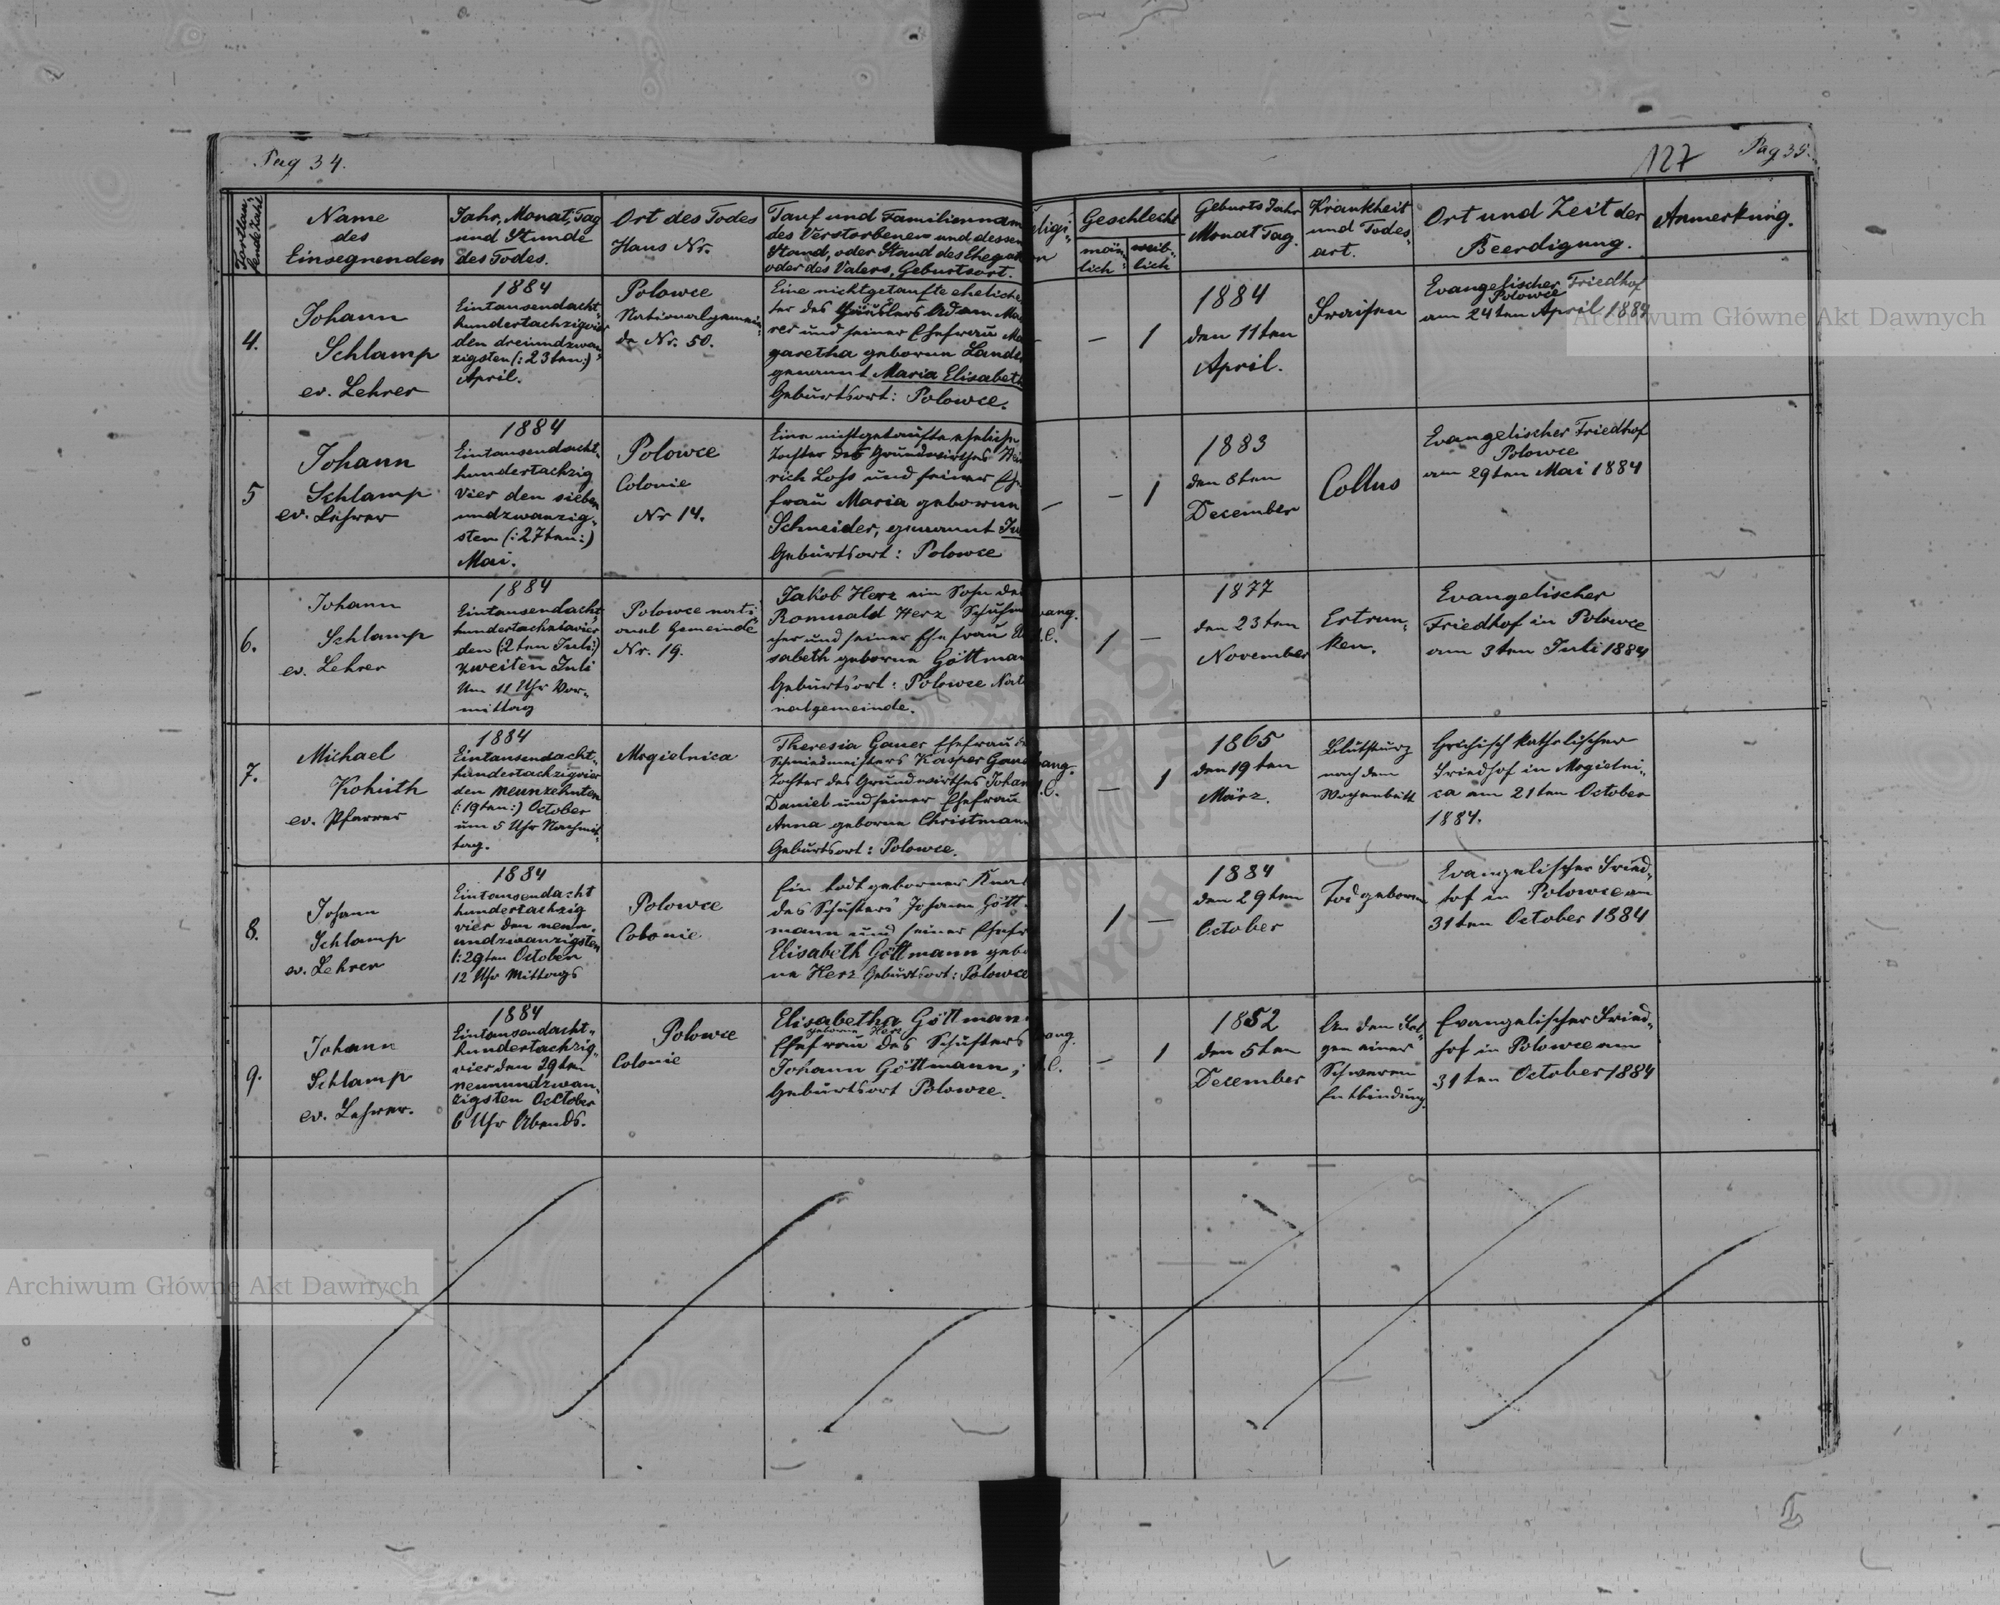 Pag 34.
127
Pag 35.
Fortlau-
fende Zahl
Name
des
Einsegnenden
Jahr, Monat, Tag
und Stunde
des Todes.
Ort des Todes
Haus Nr.
Tauf und Familiennam
des Verstorbenen und dessen
Stand, oder Stand des Ehegat
oder des Vaters, Geburtsort.
Religi-
on
Geschlecht
män-
lich
weib-
lich
Geburts Jahr
Monat Tag.
Krankheit
und Todes-
art.
Ort und Zeit der
Beerdigung.
Anmerkung.
4.
Johann
Schlamp
ev. Lehrer
1884
Eintausendacht-
hundertachzigvier
den dreiundzwan-
zigsten (: 23ten :)
April.
Polowce
Nationalgemein-
de Nr. 50.
Eine nichtgetaufte eheliche
ter des Häuslers Adam Mau
rer und seiner Ehefrau Ma
garetha geborne Landes
genannt Maria Elisabeth
Geburtsort: Polowce.
–
–
1
1884
den 11ten
April.
Fraisen
Evangelischer Friedhof
Polowce
am 24ten April 1884
5
Johann
Schlamp
ev. Lehrer
1884
Eintausendacht-
hundertachzig
vier den sieben
undzwanzig-
sten (: 27ten :)
Mai.
Polowce
Colonie
Nr 14.
Eine nichtgetaufte eheliche
Tochter des Grundwirthes Hein
rich Lohs und seiner Ehe
frau Maria geborne
Schneider, genannt
Geburtsort: Polowce
–
–
1
1883
den 8ten
December
Collus
Evangelischer Friedhof
Polowce
am 29ten Mai 1884
6.
Johann
Schlamp
ev. Lehrer
1884
Eintausendacht-
hundertachtzavier
den (2ten Juli:)
zweiten Juli
Um 11 Uhr Vor-
mittag
Polowce nati-
onal Gemeinde
Nr. 19.
Jakob Herz ein Sohn des
Romuald Herz Schuhma
cher und seiner Ehefrau Eli
sabeth geborne Göttman
Geburtsort: Polowce Nati
nalgemeinde.
evang.
A.C.
1
–
1877
den 23ten
November
Ertrun-
ken.
Evangelischer
Friedhof in Polowce
am 3ten Juli 1884
7.
Michael
Kohuth
ev. Pfarrer
1884
Eintausendacht-
hundertachzigvier
den neunzehnten
(: 19ten :) October
um 5 Uhr Nachmit-
tag.
Mogielnica
Theresia Gauer Ehefrau des
Schmiedmeisters Kasper Gauer
Tochter des Grundwirthes Johann
Daniel und seiner Ehefrau
Anna geborne Christmann
Geburtsort: Polowce.
evang.
A.C.
–
1
1865
den 19ten
März.
Blutsturz
nach dem
Wochenbett
Grichisch katholischer
Friedhof in Mogielni-
ca am 21ten October
1884.
8.
Johann
Schlamp
ev. Lehrer
1884
Eintausendacht
hundertachzig
vier den neun-
undzwanzigsten
(: 29ten October
12 Uhr Mittags
Polowce
Colonie
Ein todt geborner Knab
des Schusters Johann Gött-
mann und seiner Ehefr
Elisabeth Göttmann gebo
ne Herz Geburtsort: Polowce
1
–
1884
den 29ten
October
Todgeboren
Evangelischer Fried-
hof in Polowce am
31ten October 1884
9.
Johann
Schlamp
ev. Lehrer.
1884
Eintausendacht-
hundertachzig-
vier den 29ten
neunundzwan-
zigsten October
6 Uhr Abends.
Polowce
Colonie
Elisabetha Göttman
geborne Herz
Ehefrau des Schusters
Johann Göttmann;
Geburtsort Polowce.
evang.
A.C.
–
1
1852
den 5ten
December
An den Fol-
gen einer
Schweren
Entbindung.
Evangelischer Fried-
hof in Polowce am
31ten October 1884
Archiwum Główne Akt Dawnych
Archiwum Główne Akt Dawnych